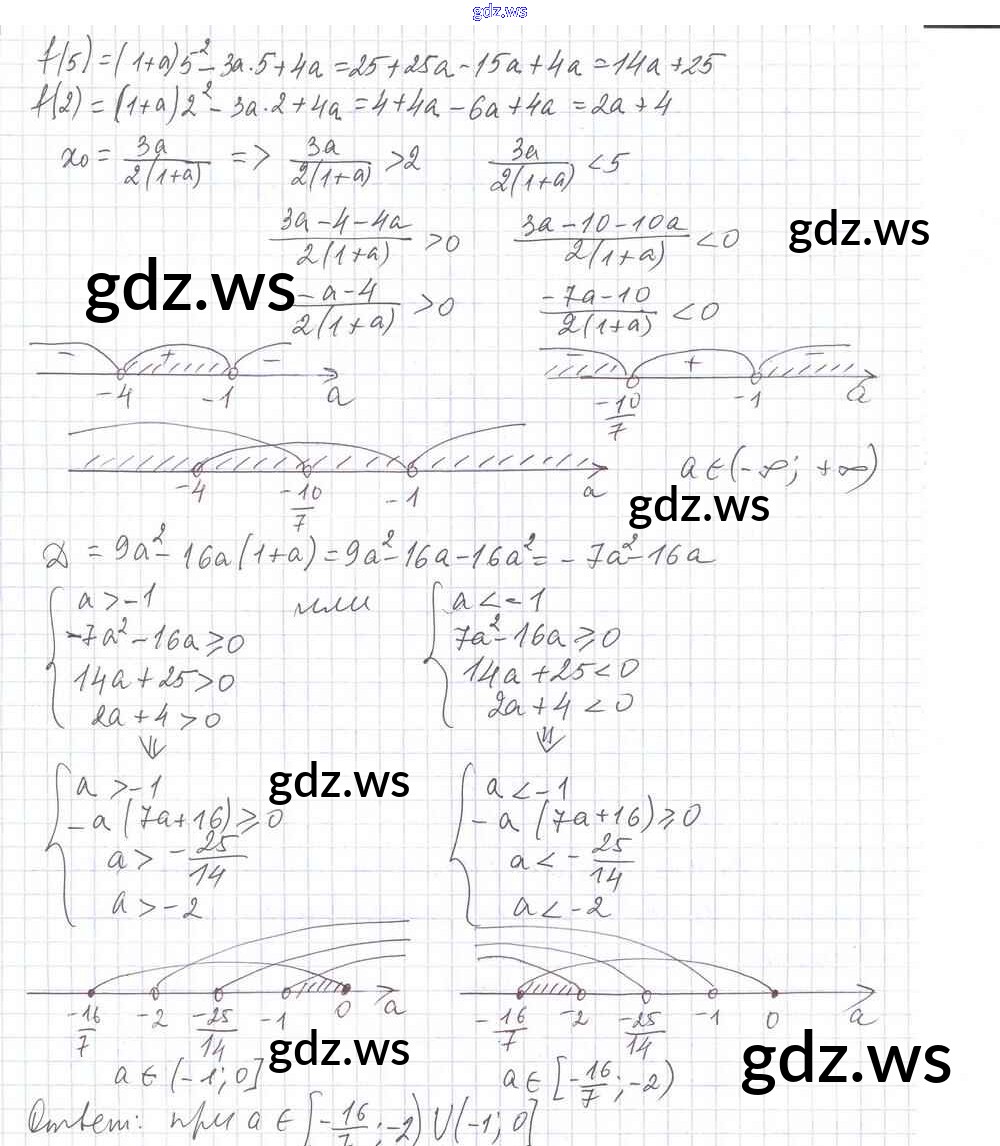 gdz.ws
f(5) = (1+a)5² - 3a·5 + 4a = 25 + 25a - 15a + 4a = 14a + 25
f(2) = (1+a)2² - 3a·2 + 4a = 4 + 4a - 6a + 4a = 2a + 4
x₀ = 3a/(2(1+a)) => 3a/(2(1+a)) > 2   3a/(2(1+a)) < 5
(3a-4-4a)/(2(1+a)) > 0   (3a-10-10a)/(2(1+a)) < 0   gdz.ws
gdz.ws   (-a-4)/(2(1+a)) > 0   (-7a-10)/(2(1+a)) < 0
- + -   - + -
-4 -1 a   -10/7 -1 a
-4 -10/7 -1 a   a ∈ (-∞; +∞)
gdz.ws
D = 9a² - 16a(1+a) = 9a² - 16a - 16a² = -7a² - 16a
a > -1   или   a < -1
-7a² - 16a ⩾ 0   7a² - 16a ⩾ 0
14a + 25 > 0   14a + 25 < 0
2a + 4 > 0   2a + 4 < 0
⇓   ⇓
a > -1   gdz.ws   a < -1
-a(7a+16) ⩾ 0   -a(7a+16) ⩾ 0
a > -25/14   a < -25/14
a > -2   a < -2
-16/7 -2 -25/14 -1 0 a   -16/7 -2 -25/14 -1 0 a
gdz.ws   gdz.ws
a ∈ (-1; 0]   a ∈ [-16/7; -2)
Ответ: при a ∈ [-16/7; -2) U (-1; 0]